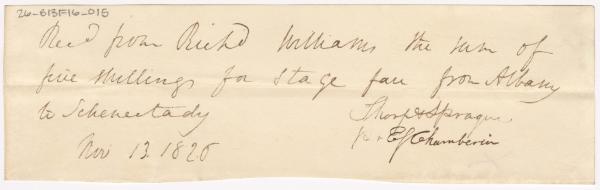 26-S1BF16-015
Recd from Richd Williams the sum of
five shillings for stage fare from Albany
to Schenectady
Thorp & Sprague
pr E J Chamberlin
Nov 13. 1826